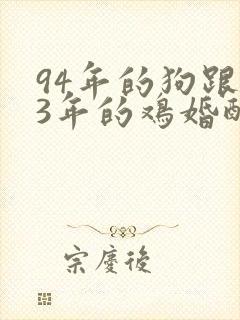 94年的狗跟
3年的鸡婚配
宗慶後